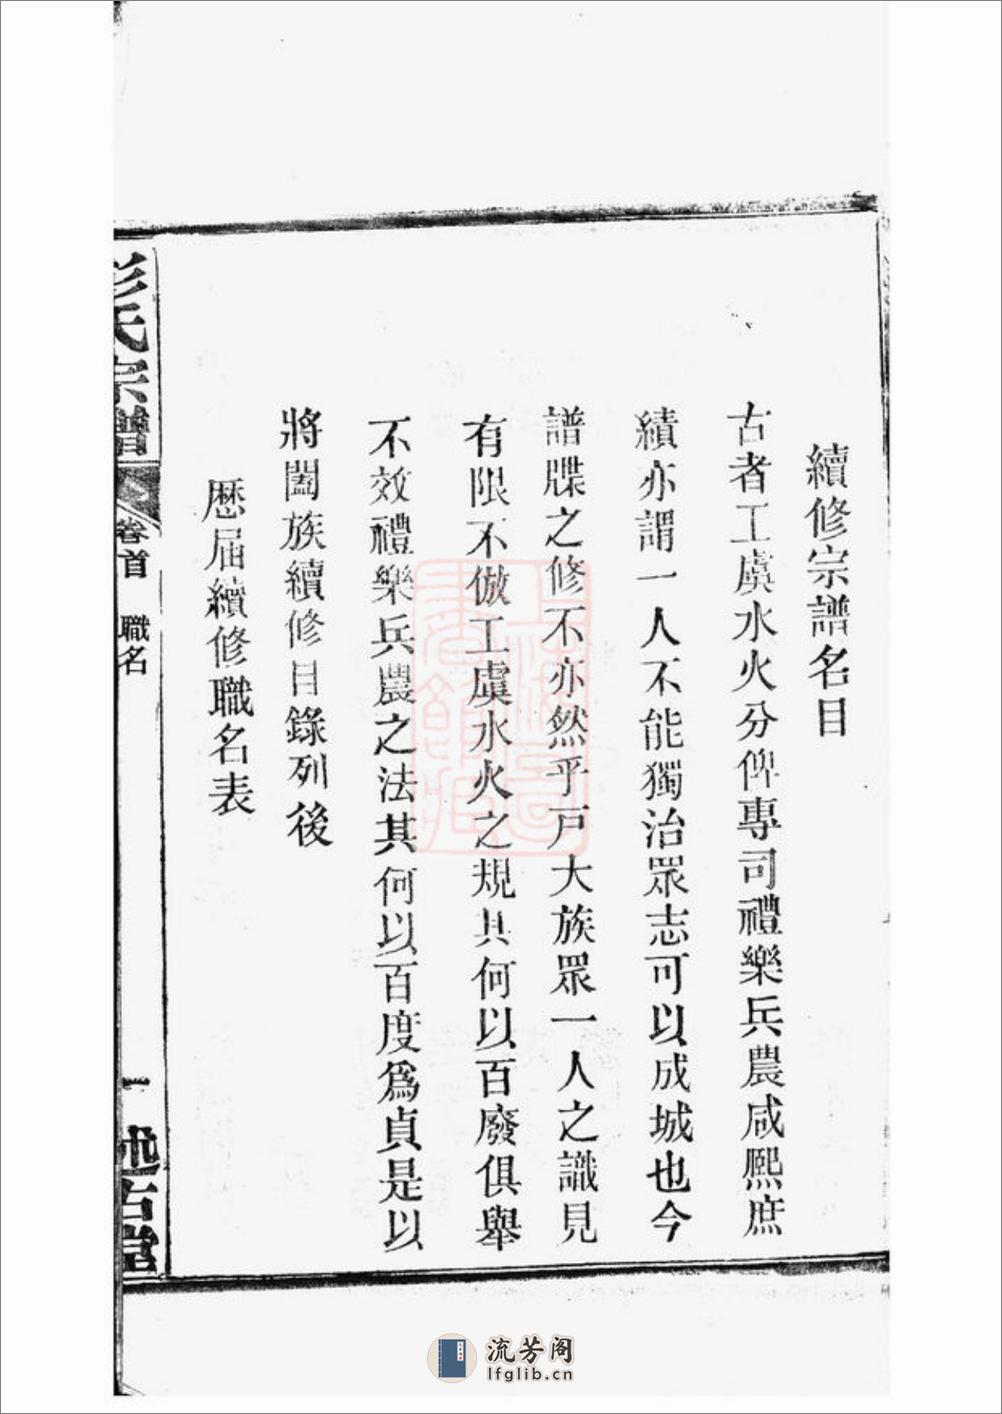 續修宗譜名目
古者工虞水火分俾專司禮樂兵農咸熙庶
績亦謂一人不能獨治眾志可以成城也今
譜牒之修不亦然乎戸大族眾一人之識見
有限不倣工虞水火之規其何以百廢俱舉
不效禮樂兵農之法其何以百度爲貞是以
將闔族續修目錄列後
歷届續修職名表
彭氏宗譜
卷首 職名
一
述古堂
流芳阁
lfglib.cn